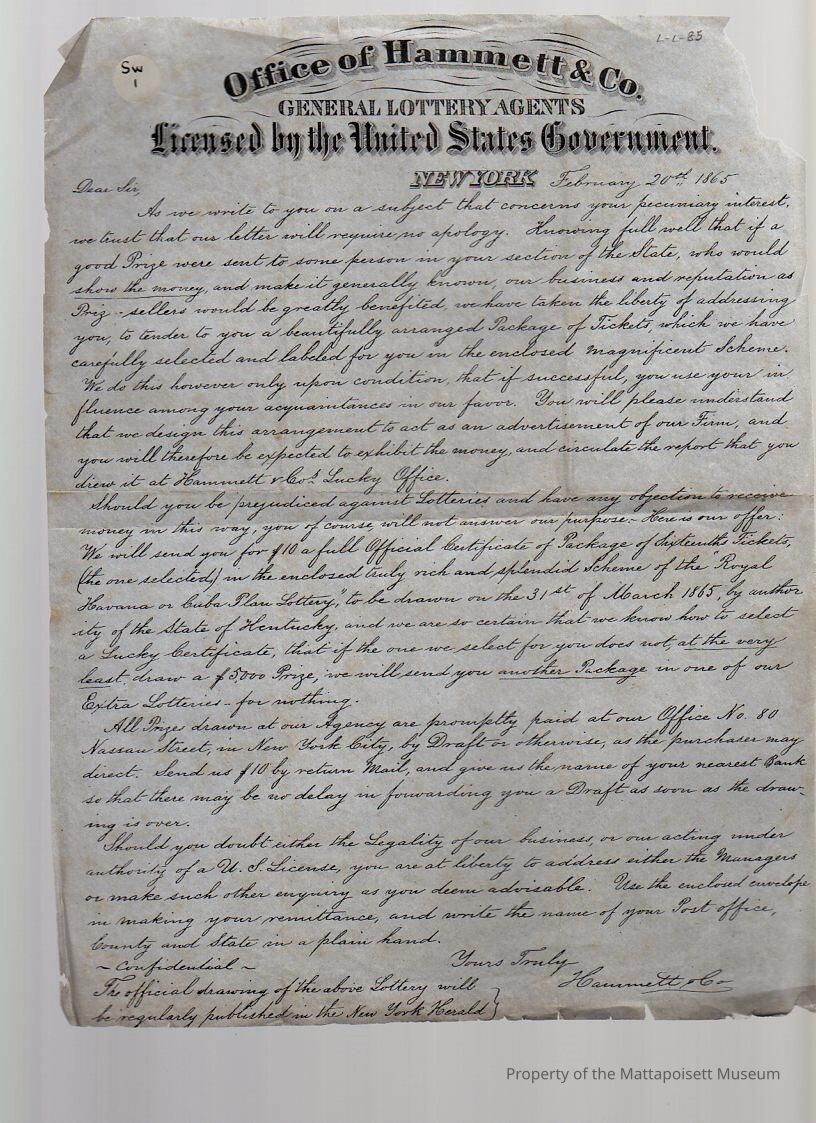 L-L-85
Sw
1
Office of Hammett & Co.
GENERAL LOTTERY AGENTS
Licensed by the United States Government.
NEW YORK February 20th 1865
Dear Sir,
As we write to you on a subject that concerns your pecuniary interest,
we trust that our letter will require no apology. Knowing full well that if a
good Prize were sent to some person in your section of the State, who would
show the money, and make it generally known, our business and reputation as
Priz-sellers would be greatly benefited, we have taken the liberty of addressing
you, to tender to you a beautifully arranged Package of Tickets, which we have
carefully selected and labeled for you in the enclosed magnificent Scheme.
We do this however only upon condition, that if successful, you use your in
fluence among your acquaintances in our favor. You will please understand
that we design this arrangement to act as an advertisement of our Firm, and
you will therefore be expected to exhibit the money, and circulate the report that you
drew it at Hammett & Co's Lucky Office.
Should you be prejudiced against Lotteries and have any objection to receive
money in this way, you of course will not answer our purpose. Here is our offer:
We will send you for $10 a full Official Certificate of Package of Sixteenths Tickets,
(the one selected) in the enclosed truly rich and splendid Scheme of the "Royal
Havana or Cuba Plan Lottery," to be drawn on the 31st of March 1865, by author
ity of the State of Kentucky, and we are so certain that we know how to select
a Lucky Certificate, that if the one we select for you does not, at the very
least, draw a $5,000 Prize, we will send you another Package in one of our
Extra Lotteries - for nothing.
All Prizes drawn at our Agency are promptly paid at our Office No. 80
Nassau Street, in New York City, by Draft or otherwise, as the purchaser may
direct. Send us $10 by return Mail, and give us the name of your nearest Bank
so that there may be no delay in forwarding you a Draft as soon as the draw-
ing is over.
Should you doubt either the Legality of our business, or our acting under
authority of a U.S. License, you are at liberty to address either the Managers
or make such other enquiry as you deem advisable. Use the enclosed envelope
in making your remittance, and write the name of your Post office,
County and State in a plain hand.
~ Confidential ~ Yours Truly
The official drawing of the above Lottery will Hammett & Co
be regularly published in the New York Herald }
Property of the Mattapoisett Museum